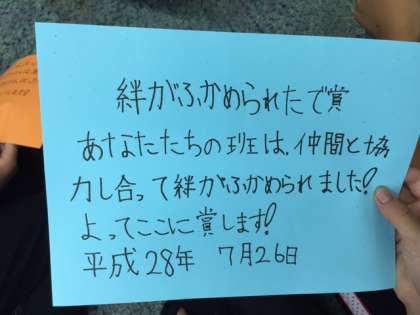 絆がふかめられたで賞
あなたたちの班は、仲間と協
力し合って絆がふかめられました!
よってここに賞します!
平成28年 7月26日